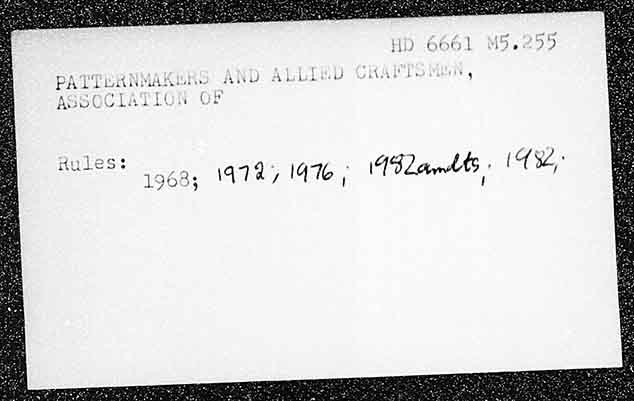 HD 6661 M5.255
PATTERNMAKERS AND ALLIED CRAFTSMEN,
ASSOCIATION OF
Rules: 1968; 1972; 1976; 1982 amdts; 1982;